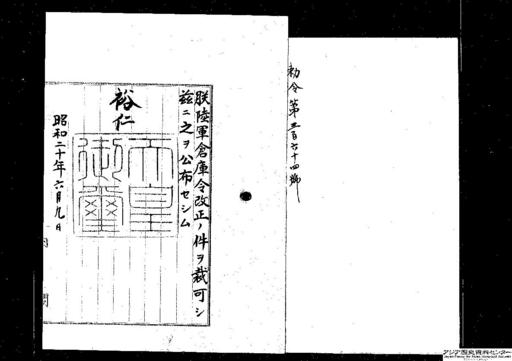 勅令第三百六十四號
朕陸軍倉庫令改正ノ件ヲ裁可シ
茲ニ之ヲ公布セシム
裕仁
天皇御璽
昭和二十年六月九日
内閣
アジア歴史資料センター